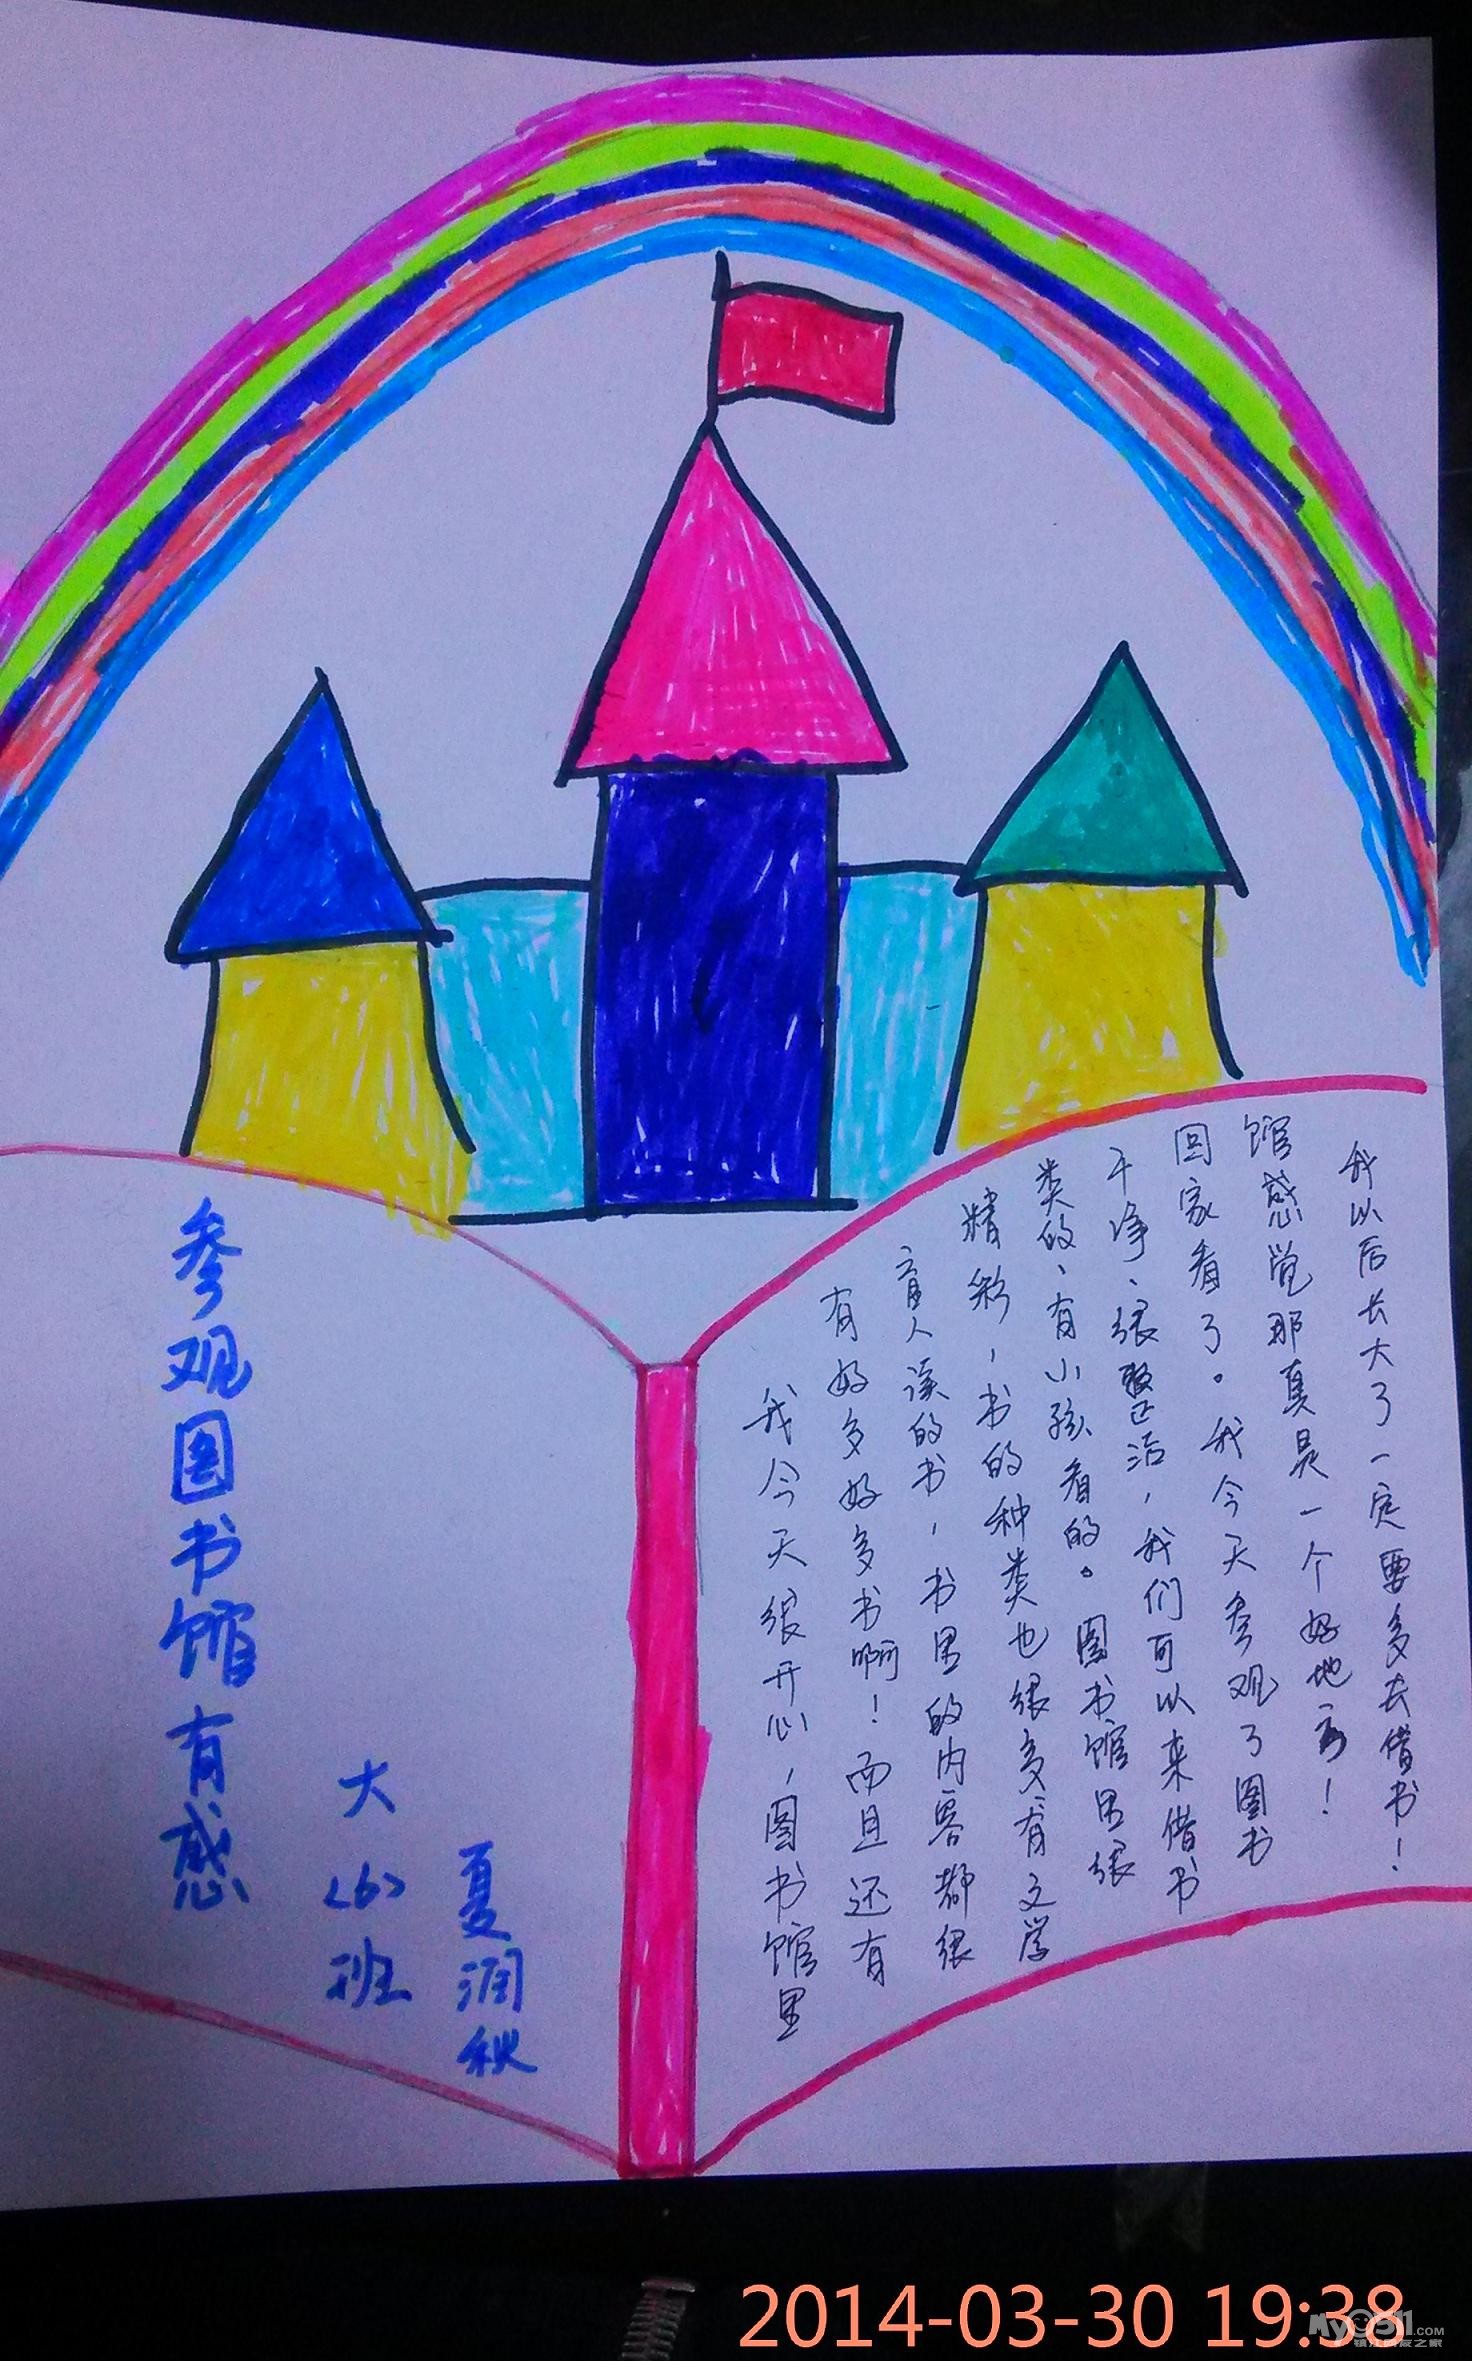 参观图书馆有感
大<6>班
夏润秋
我今天很开心,图书馆里
有好多好多书啊!而且还有
盲人读的书,书里的内容都很
精彩,书的种类也很多有文学
类的、有小孩看的。图书馆里很
干净、很整洁,我们可以来借书
回家看了。我今天参观了图书
馆感觉那真是一个好地方!
我以后长大了一定要多去借书!
2014-03-30 19:38
My0511.COM
镇江网友之家